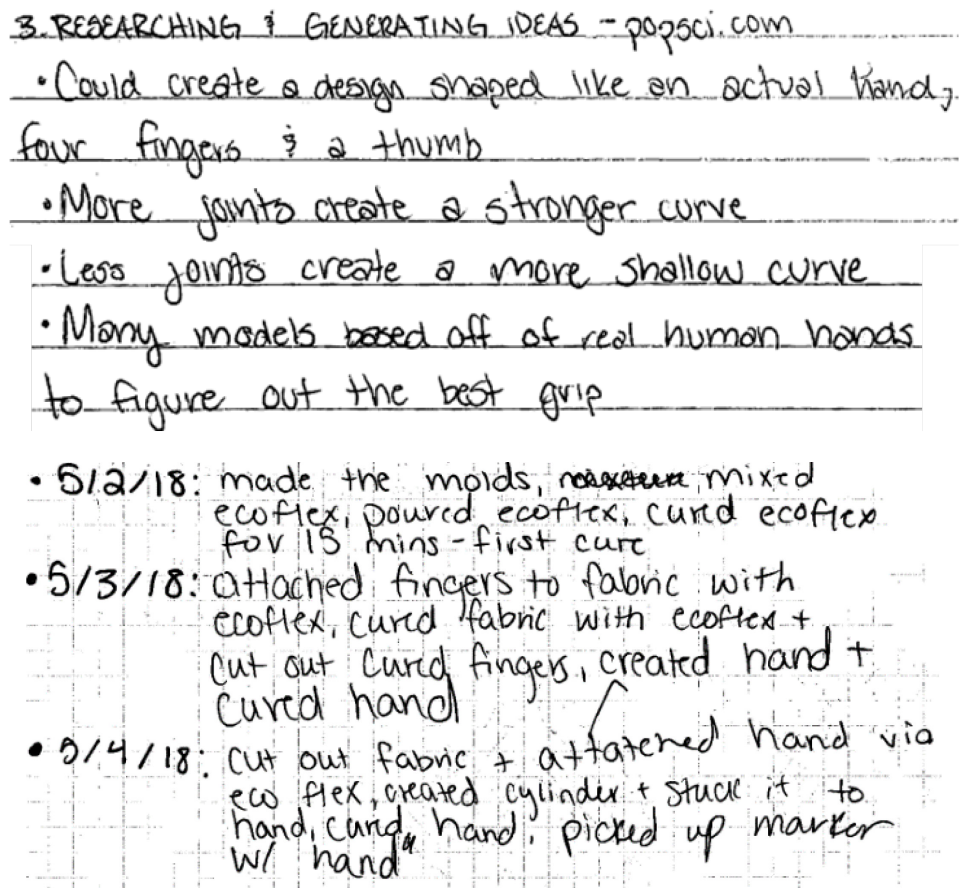 3. RESEARCHING & GENERATING IDEAS - popsci.com
• Could create a design shaped like an actual hand,
four fingers & a thumb
• More joints create a stronger curve
• Less joints create a more shallow curve
• Many models based off of real human hands
to figure out the best grip
• 5/2/18: made the molds, mixed
ecoflex, poured ecoflex, cured ecoflex
for 15 mins - first cure
• 5/3/18: attached fingers to fabric with
ecoflex, cured fabric with ecoflex +
cut out cured fingers, created hand +
cured hand
• 5/4/18: cut out fabric + attatched hand via
eco flex, created cylinder + stuck it to
hand, cured hand, picked up marker
w/ hand